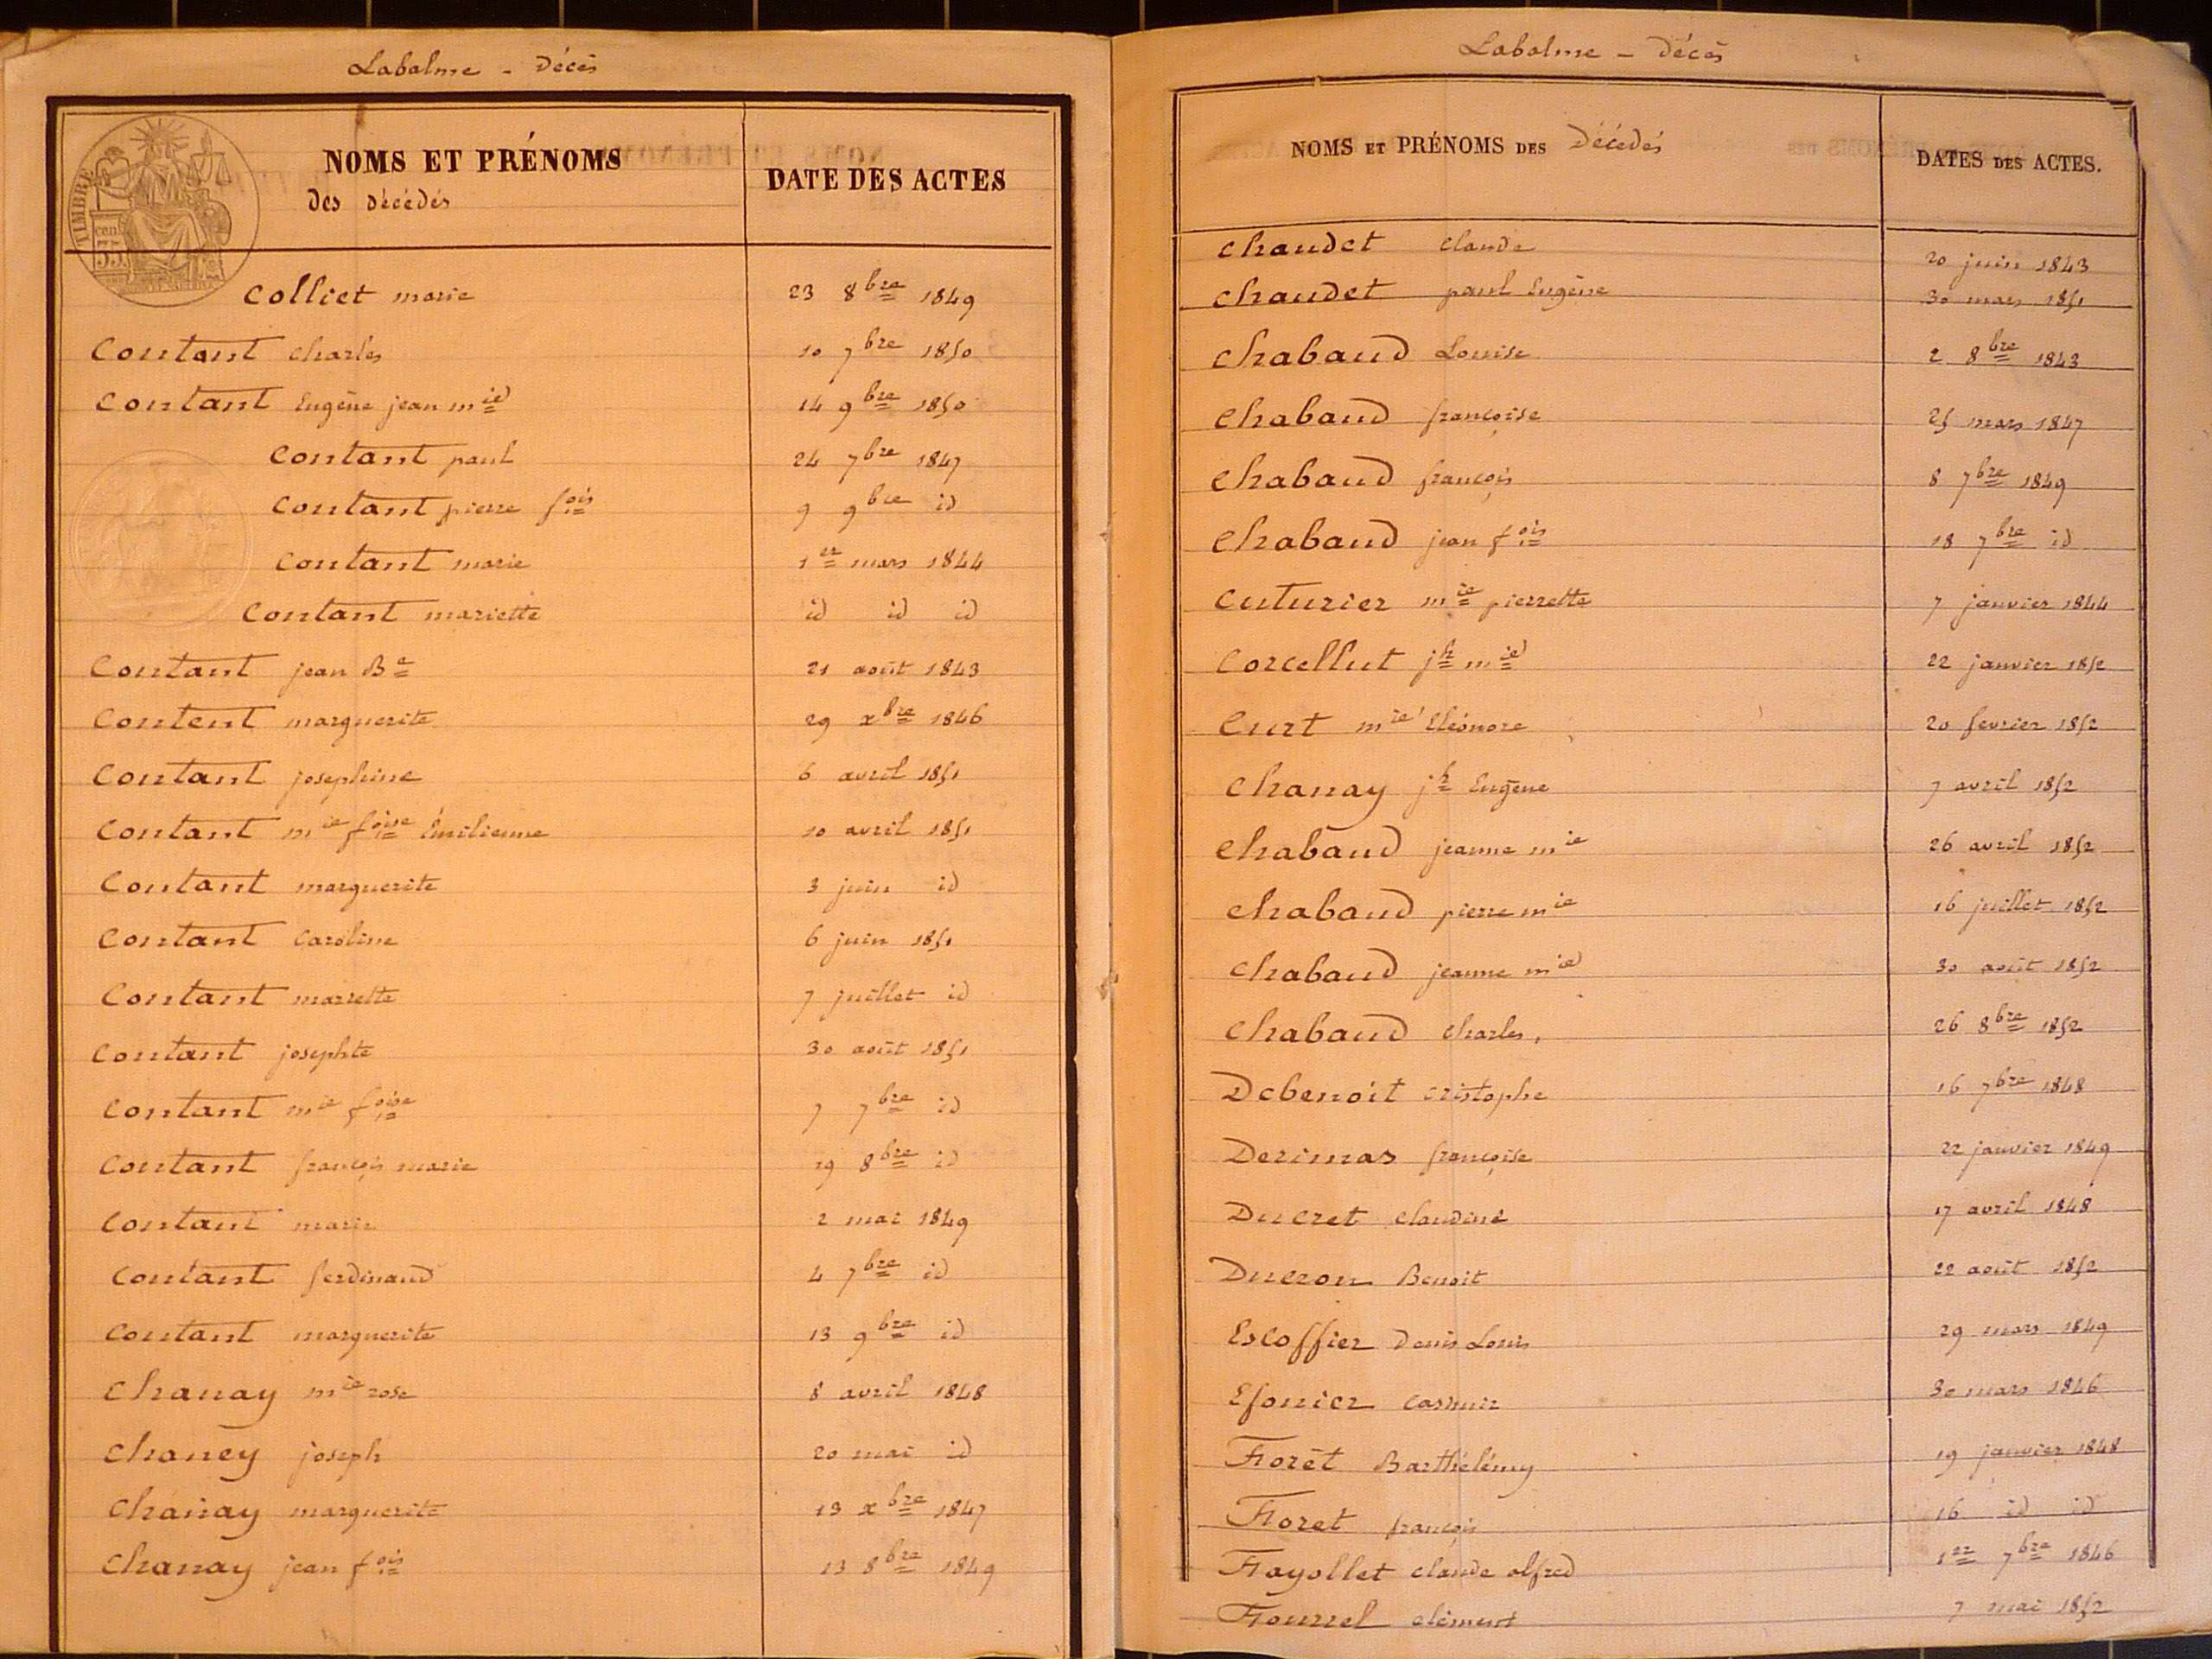 Labalme - Décès
TIMBRE
cent
35
NOMS ET PRÉNOMS
des décédés
DATE DES ACTES
Colliet marie 23 8bre 1849
Contant Charles 10 7bre 1850
Contant Eugène jean mie 14 9bre 1850
Contant paul 24 7bre 1847
Contant pierre fois 9 9bre id
Contant marie 1er mars 1844
Contant mariette id id id
Contant jean Bte 21 août 1843
Content marguerite 29 xbre 1846
Contant josephine 6 avril 1851
Contant mie foise Émilienne 10 avril 1851
Contant marguerite 3 juin id
Contant Caroline 6 juin 1851
Contant mariette 7 juillet id
Contant josephte 30 août 1851
Contant mie foise 7 7bre id
Contant françois marie 19 8bre id
Contant marie 2 mai 1849
Contant ferdinand 4 7bre id
Contant marguerite 13 9bre id
Chanay mie rose 8 avril 1848
Chaney joseph 20 mai id
Chanay marguerite 13 xbre 1847
Chanay jean fois 13 8bre 1849
Labalme - Décès
NOMS ET PRÉNOMS DES Décédés
DATES DES ACTES.
Chaudet Claude 20 juin 1843
Chaudet paul Eugène 30 mars 1851
Chabaud Louise 2 8bre 1843
Chabaud françoise 25 mars 1847
Chabaud françois 8 7bre 1849
Chabaud jean fois 18 7bre id
Cuturier mie pierrette 7 janvier 1844
Corcellut jh mie 22 janvier 1852
Curt mie Eléonore 20 fevrier 1852
Chanay jh Eugène 7 avril 1852
Chabaud jeanne mie 26 avril 1852
Chabaud pierre mie 16 juillet 1852
Chabaud jeanne mie 30 août 1852
Chabaud Charles, 26 8bre 1852
Debenoit cristophe 16 7bre 1848
Derimas françoise 22 janvier 1849
Ducret Claudine 17 avril 1848
Ducron Benoit 22 août 1852
Escoffier Denis Louis 29 mars 1849
Esonier Casimir 30 mars 1846
Foret Barthélémy 19 janvier 1848
Foret françois 16 id id
Fayollet Claude alfred 1er 7bre 1846
Fournel Clément 7 mai 1852